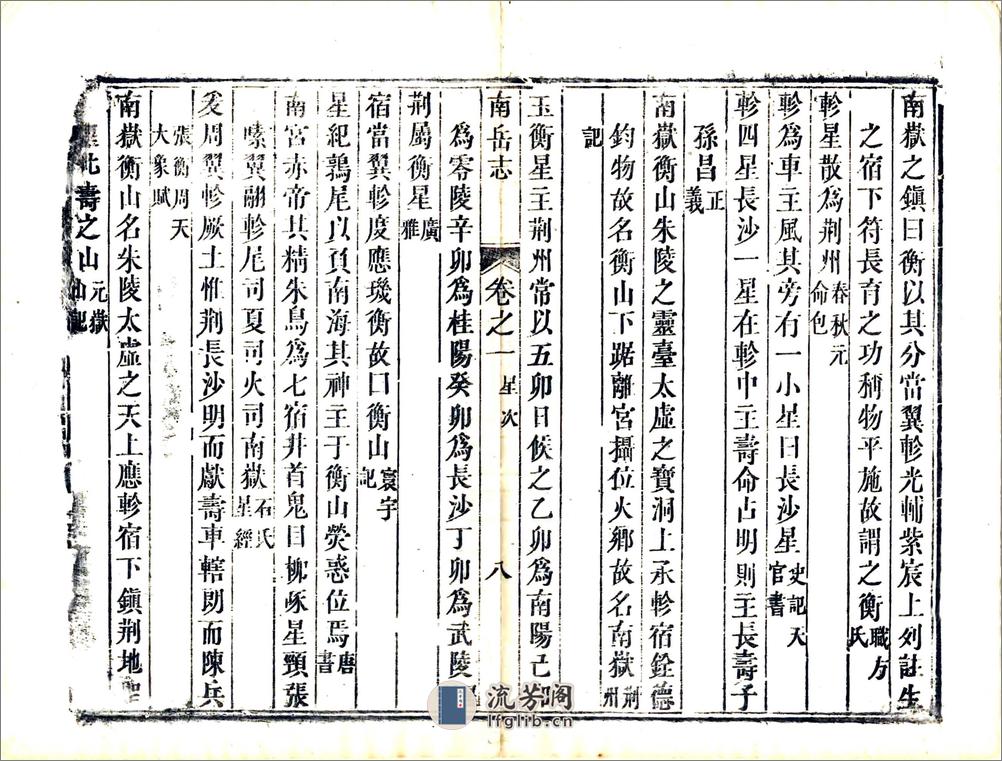 南嶽之鎮曰衡以其分當翼軫光輔紫宸上列註生
之宿下符長育之功稱物平施故謂之衡職方氏
軫星散為荆州春秋元命包
軫為車主風其旁有一小星曰長沙星史記天官書
軫四星長沙一星在軫中主壽命占明則主長壽子
孫昌正義
南嶽衡山朱陵之靈臺太虛之寶洞上承軫宿銓德
鈞物故名衡山下踞離宮攝位火鄉故名南嶽荆州
記
玉衡星主荆州常以五卯日候之乙卯為南陽己卯
南岳志 卷之一 星次 八
為零陵辛卯為桂陽癸卯為長沙丁卯為武陵
荆屬衡星廣雅
宿當翼軫度應璣衡故曰衡山寰宇記
星紀鶉尾以負南海其神主于衡山熒惑位焉唐書
南宮赤帝其精朱鳥為七宿井首鬼目柳啄星頸張
嗉翼翮軫尾司夏司火司南嶽石氏星經
爰周翼軫厥土惟荆長沙明而獻壽車轄朗而陳兵
張衡周天大象賦
南嶽衡山名朱陵太虛之天上應軫宿下鎮荆地聖
北壽之山元嶽山記
流芳阁
lfglib.cn